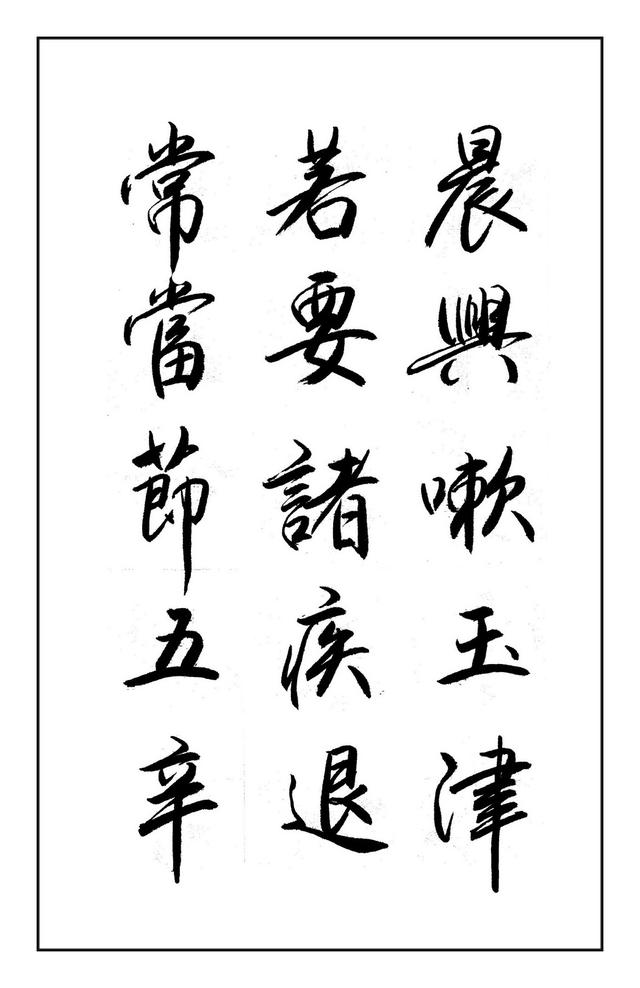 晨興嗽玉津
若要諸疾退
常當節五辛